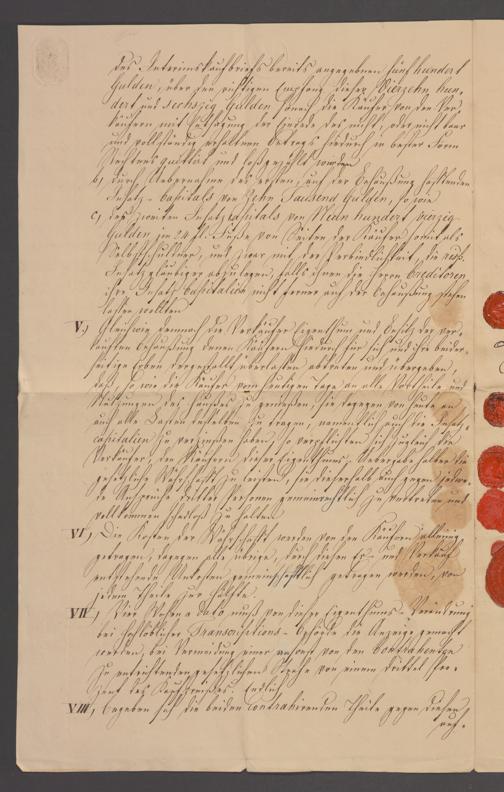 des Interimskaufbriefs bereits angegebenen fünfhundert
Gulden, über den richtigen Empfang dieser Vierzehn hun-
dert und sechszig Gulden sonach die Käufer von den Ver-
käufern mit Entsagung der Einrede des nicht, oder nicht baar
und vollständig erhaltenen Betrags hiedurch in bester Form
Rechtens quittirt und losgezählt werden
b, durch Uebernahme des ersten, auf der Behausung haftenden
Insatz-Capitals von Zehn Tausend Gulden, so wie
c, des zweiten Insatzcapitals von Neun hundert vierzig
Gulden im 24 fl. Fuße von Seiten der Käufer somit als
Selbstschuldner, und zwar mit der Verbindlichkeit, die resp.
Insatzgläubiger abzulegen, falls ihnen die Herrn Creditoren
ihre Insatz Capitalien nicht ferner auf der Behausung stehen
lassen wollten
V.) Gleichwie demnach die Verkäufer Eigenthum und Besitz der ver-
kauften Behausung denen Käufern hiedurch für sich und ihre beider-
seitige Erben dergestalt überlassen abtreten und übergeben,
daß, so wie die Käufer vom heutigen Tage an alle Vortheile und
Nutzungen des Hauses zu genießen, sie dagegen von heute an
auch alle Lasten desselben zu tragen, namentlich auch die Insatz-
capitalien zu verzinsen haben, so verpflichten sich zugleich die
Verkäufer, den Käufern dieser Eigenthums-Uebergabe halber die
gesetzliche Währschaft zu leisten, sie dieserhalb auch gegen jedwe-
de Ansprüche dritter Personen gemeinrechtlich zu vertreten und
vollkommen schadlos zu halten.
VI, Die Kosten der Währschaft werden von den Käufern alleinig
getragen, dagegen alle übrige, durch diesen Ver- und Verkauf
entstehende Unkosten gemeinschaftlich getragen werden, von
jedem Theile zur Hälfte.
VII, Vier Wochen a dato muß von dieser Eigenthums-Veränderung
bei hochlöblicher Transcriptions-Behörde die Anzeige gemacht
werden, bei Vermeidung einer ansonst von den Contrahenten
zu entrichtenden gesetzlichen Strafe von einem drittel Pro-
Zent des Kaufpreises. Endlich
VIII, begeben sich die beiden contrahirenden Theile gegen diesen
auf-